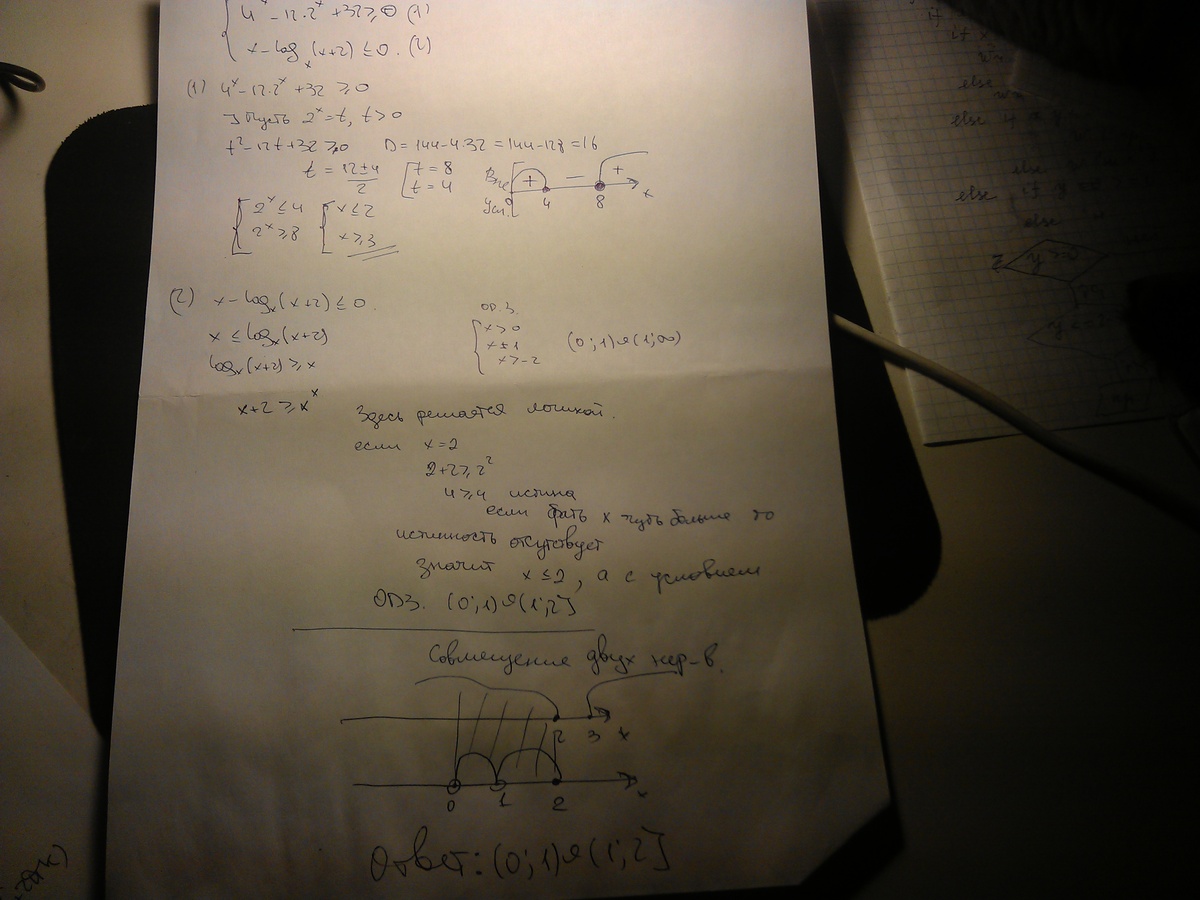 4ˣ - 12·2ˣ + 32 ≥ 0 (1)
x - logₓ(x+2) ≤ 0. (2)
(1) 4ˣ - 12·2ˣ + 32 ≥ 0
] Пусть 2ˣ = t, t > 0
t² - 12t + 32 ≥ 0 D = 144 - 4·32 = 144 - 128 = 16
t = 12±4 / 2 [ t = 8
t = 4
+ − + x
0 4 8
2ˣ ≤ 4 x ≤ 2
2ˣ ≥ 8 x ≥ 3
(2) x - logₓ(x+2) ≤ 0.
x ≤ logₓ(x+2)
logₓ(x+2) ≥ x
x+2 ≥ xˣ
ОДЗ.
x > 0
x ≠ 1 (0;1)∪(1;∞)
x > -2
Здесь решается логикой.
если x = 2
2+2 ≥ 2²
4 ≥ 4 истина
если брать x чуть больше то
истинность отсутствует
значит x ≤ 2, а с условием
ОДЗ. (0;1)∪(1;2]
Совмещение двух нер-в.
2 3 x
0 1 2 x
Ответ: (0;1)∪(1;2]
else
else
else
else
else